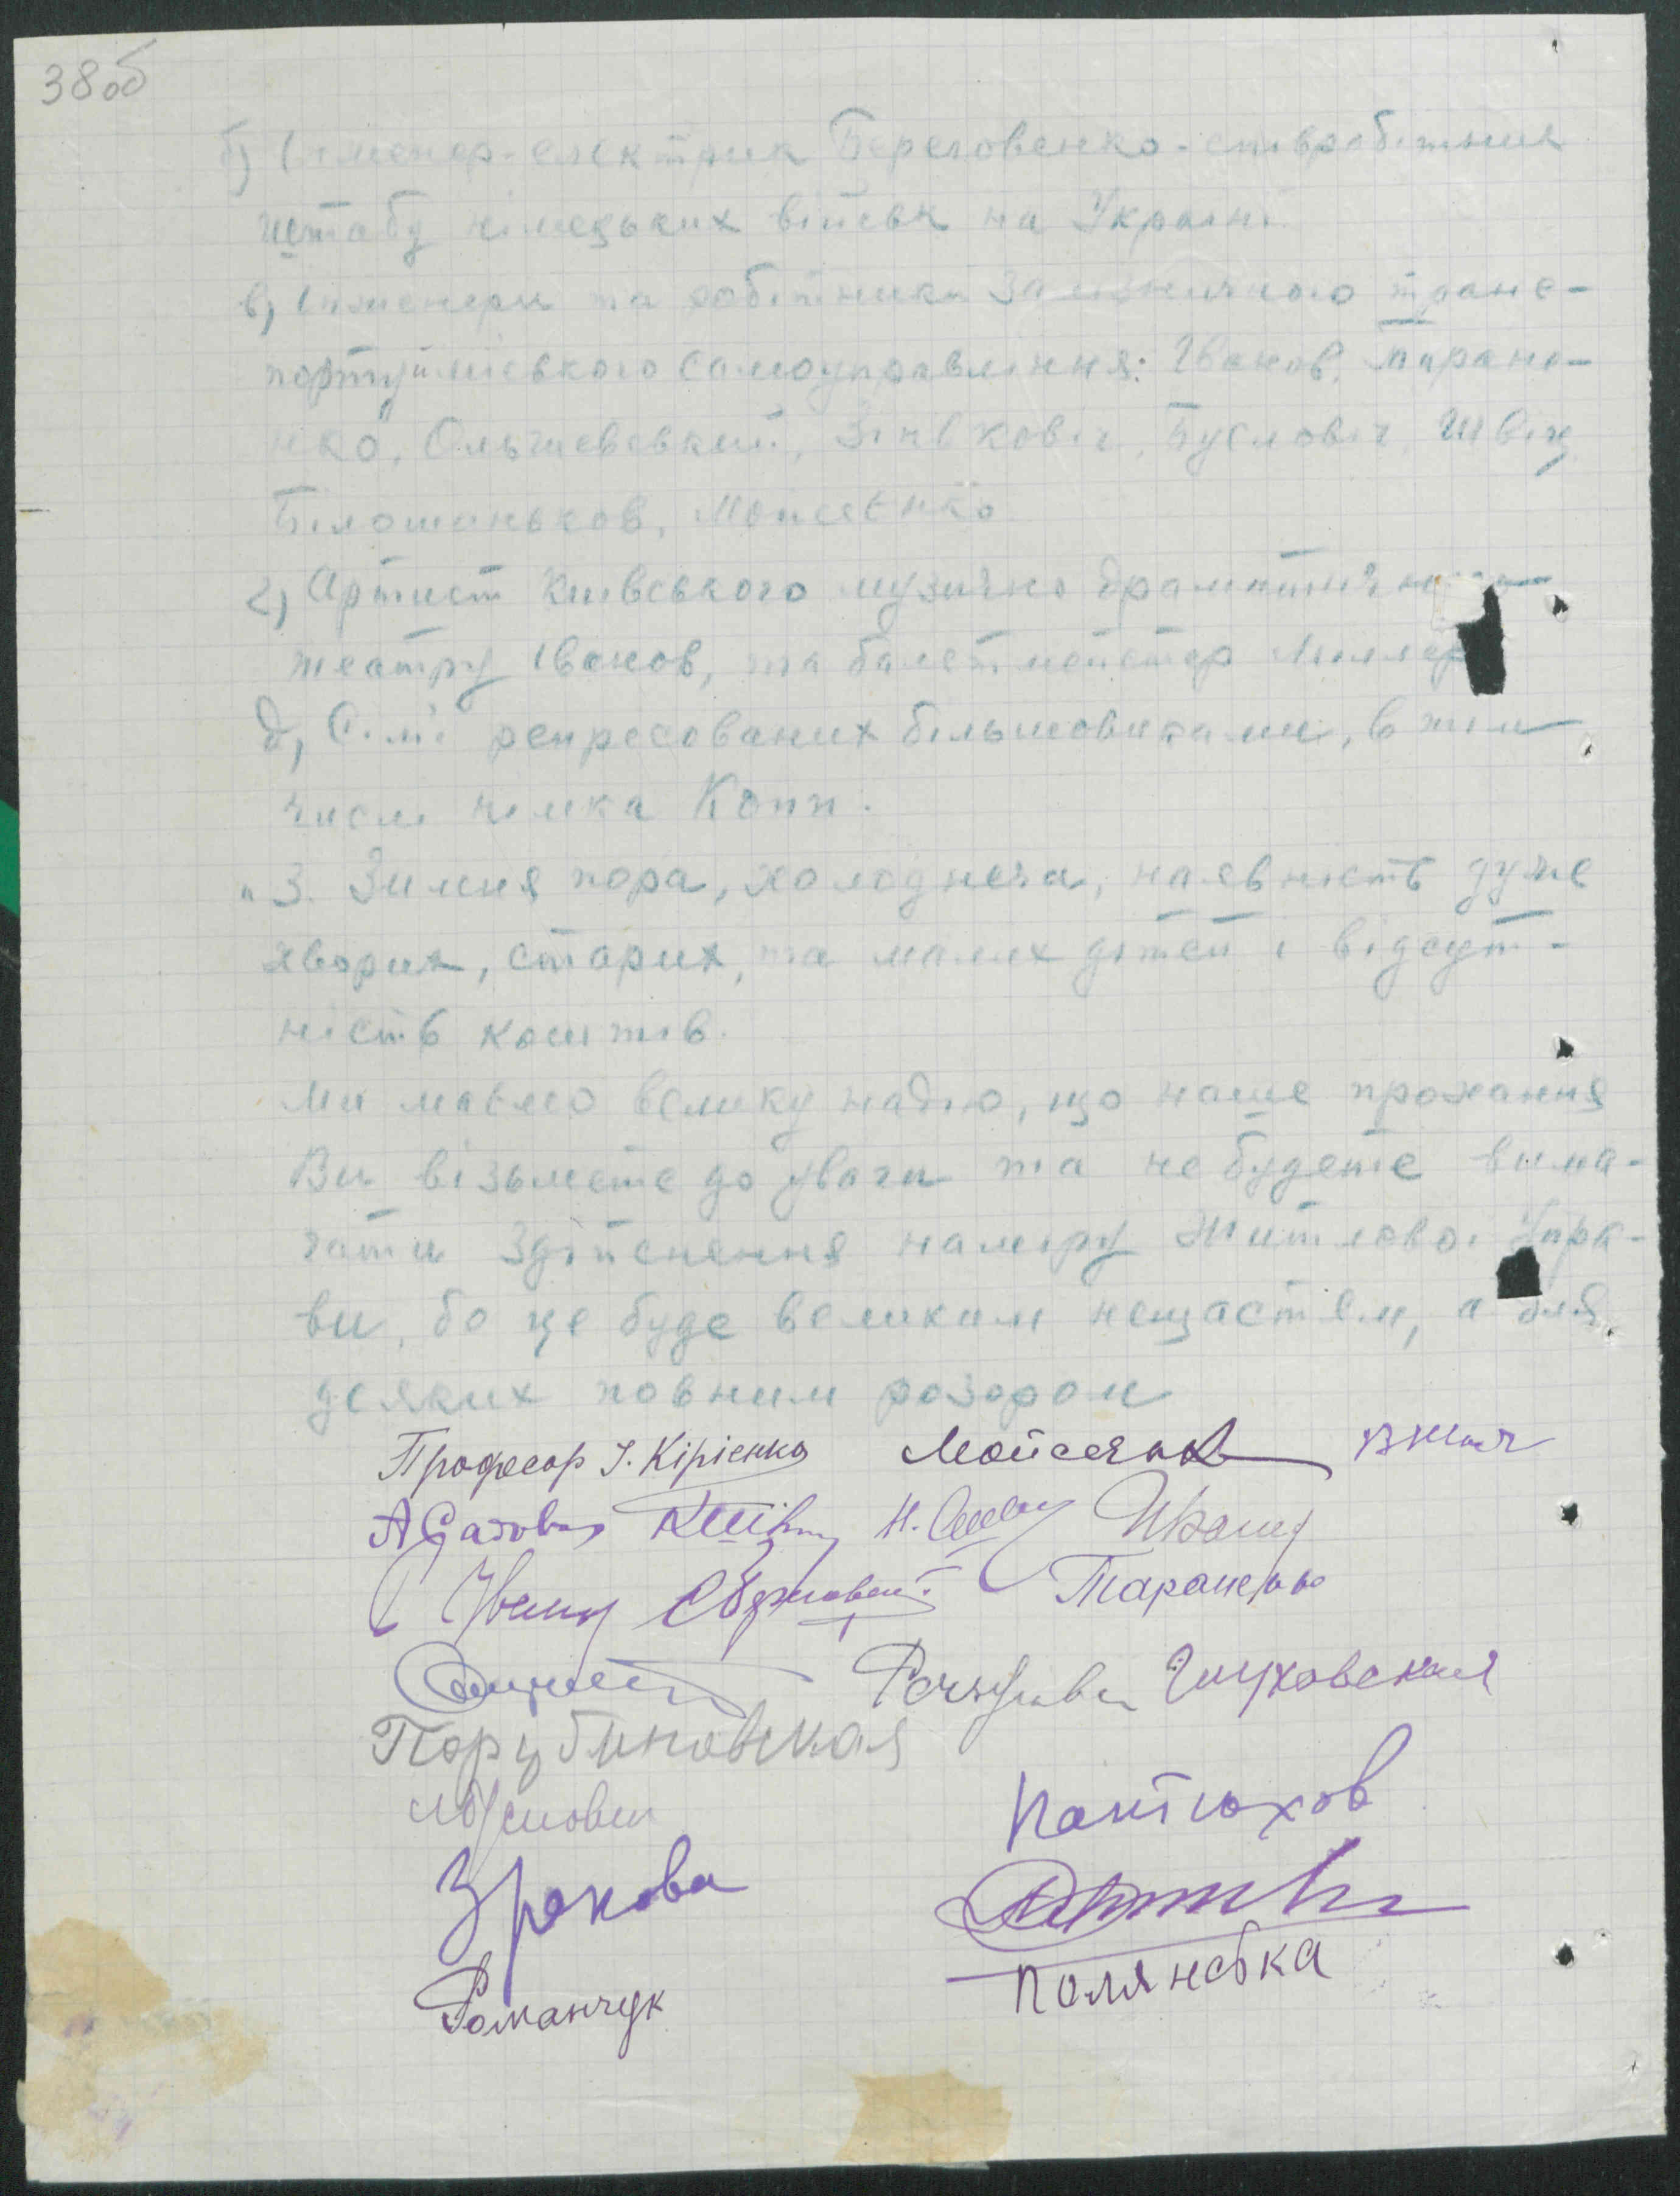 38об
б) Інженер-електрик Береговенко - співробітник
штабу німецьких військ на Україні.
в) Інженери та робітники Залізничного транс-
порту й міського самоуправління: Іванов, Таране-
нко, Ольшевський, Зінькович, Буслович, Швіц
Білошиньков, Мойсеєнко
г) Артист Київського музично драматичного
театру Іванов, та балетмейстер
д) Сім'ї репресованих більшовиками, в тім
числі німка Копп.
3. Зимня пора, холоднеча, наявність дуже
хворих, старих, та малих дітей і відсут-
ність коштів.
Ми маємо велику надію, що наше прохання
Ви візьмете до уваги та не будете вима-
гати здійснення наміру Житлової Упра-
ви, бо це буде великим нещастям, а для
деяких повним розором
Професор І. Кірієнко Мойсеєнко
Тараненко
Глуховская
Порубиновская
Пантюхов
Зракова
Романчук
Полянська